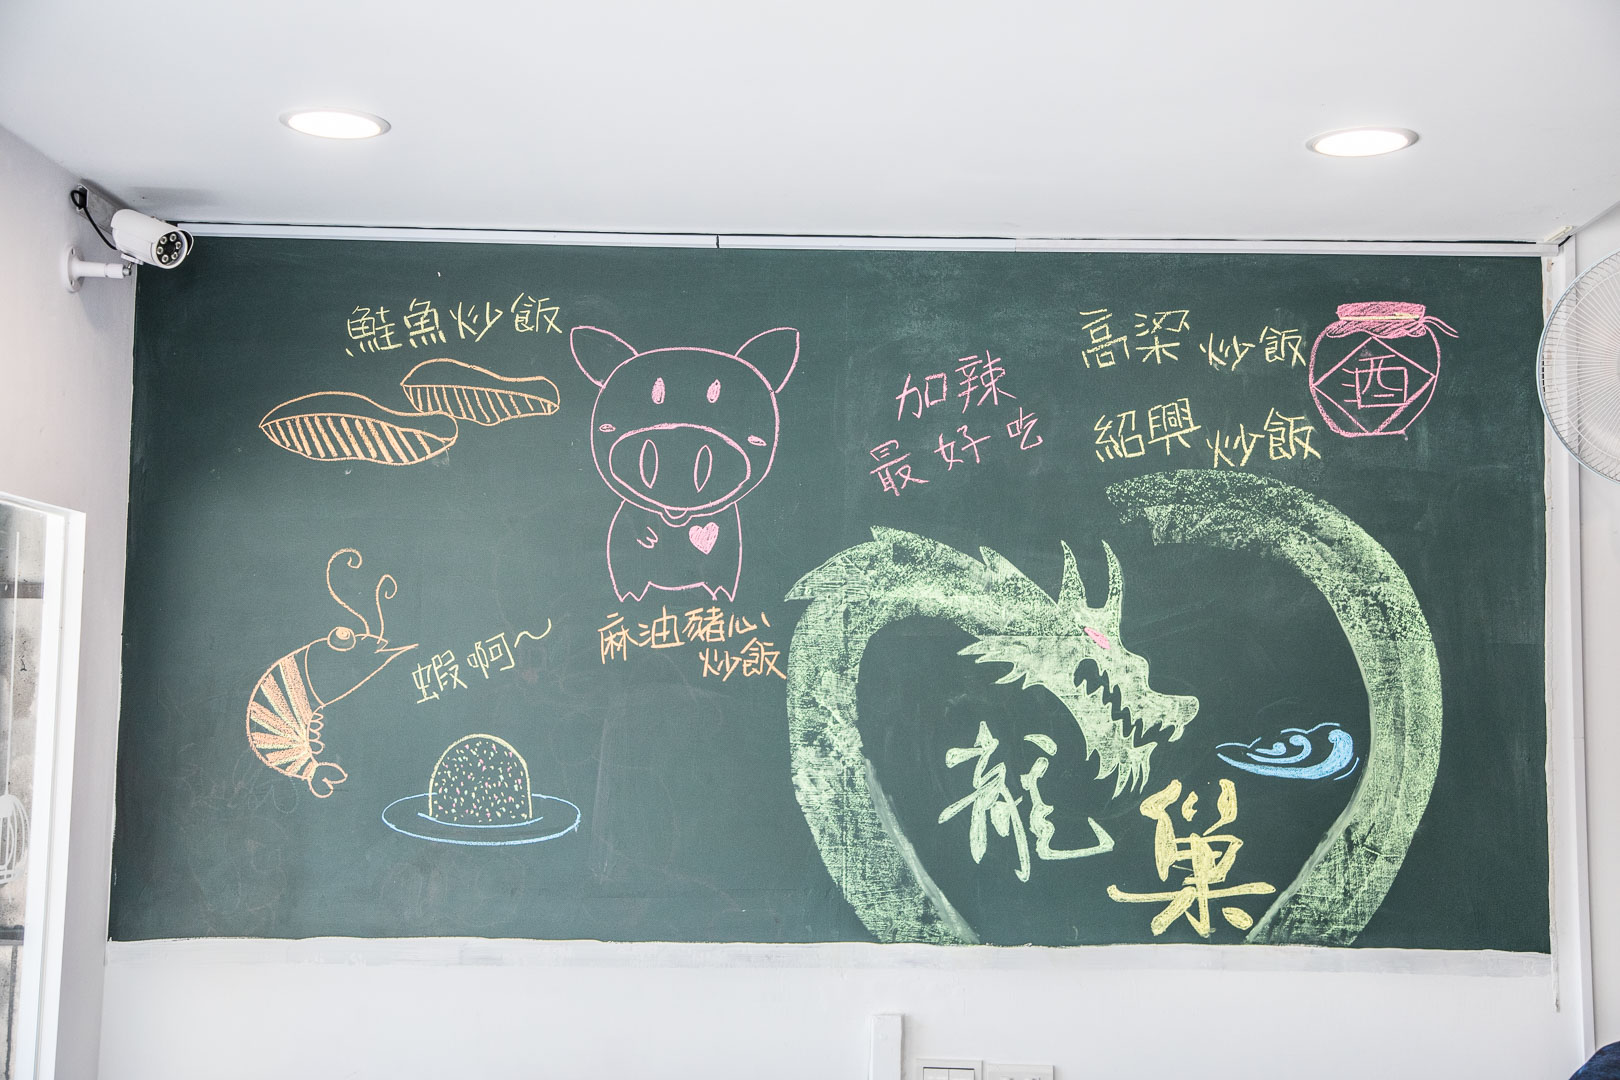 鮭魚炒飯
加辣
最好吃
高梁炒飯
紹興炒飯
酒
蝦啊～
麻油豬心
炒飯
龍巢